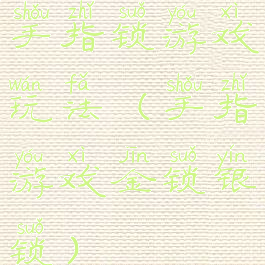 shǒu zhǐ suǒ yóu xì
手指锁游戏
wán fǎ shǒu zhǐ
玩法（手指
yóu xì jīn suǒ yín
游戏金锁银
suǒ
锁）